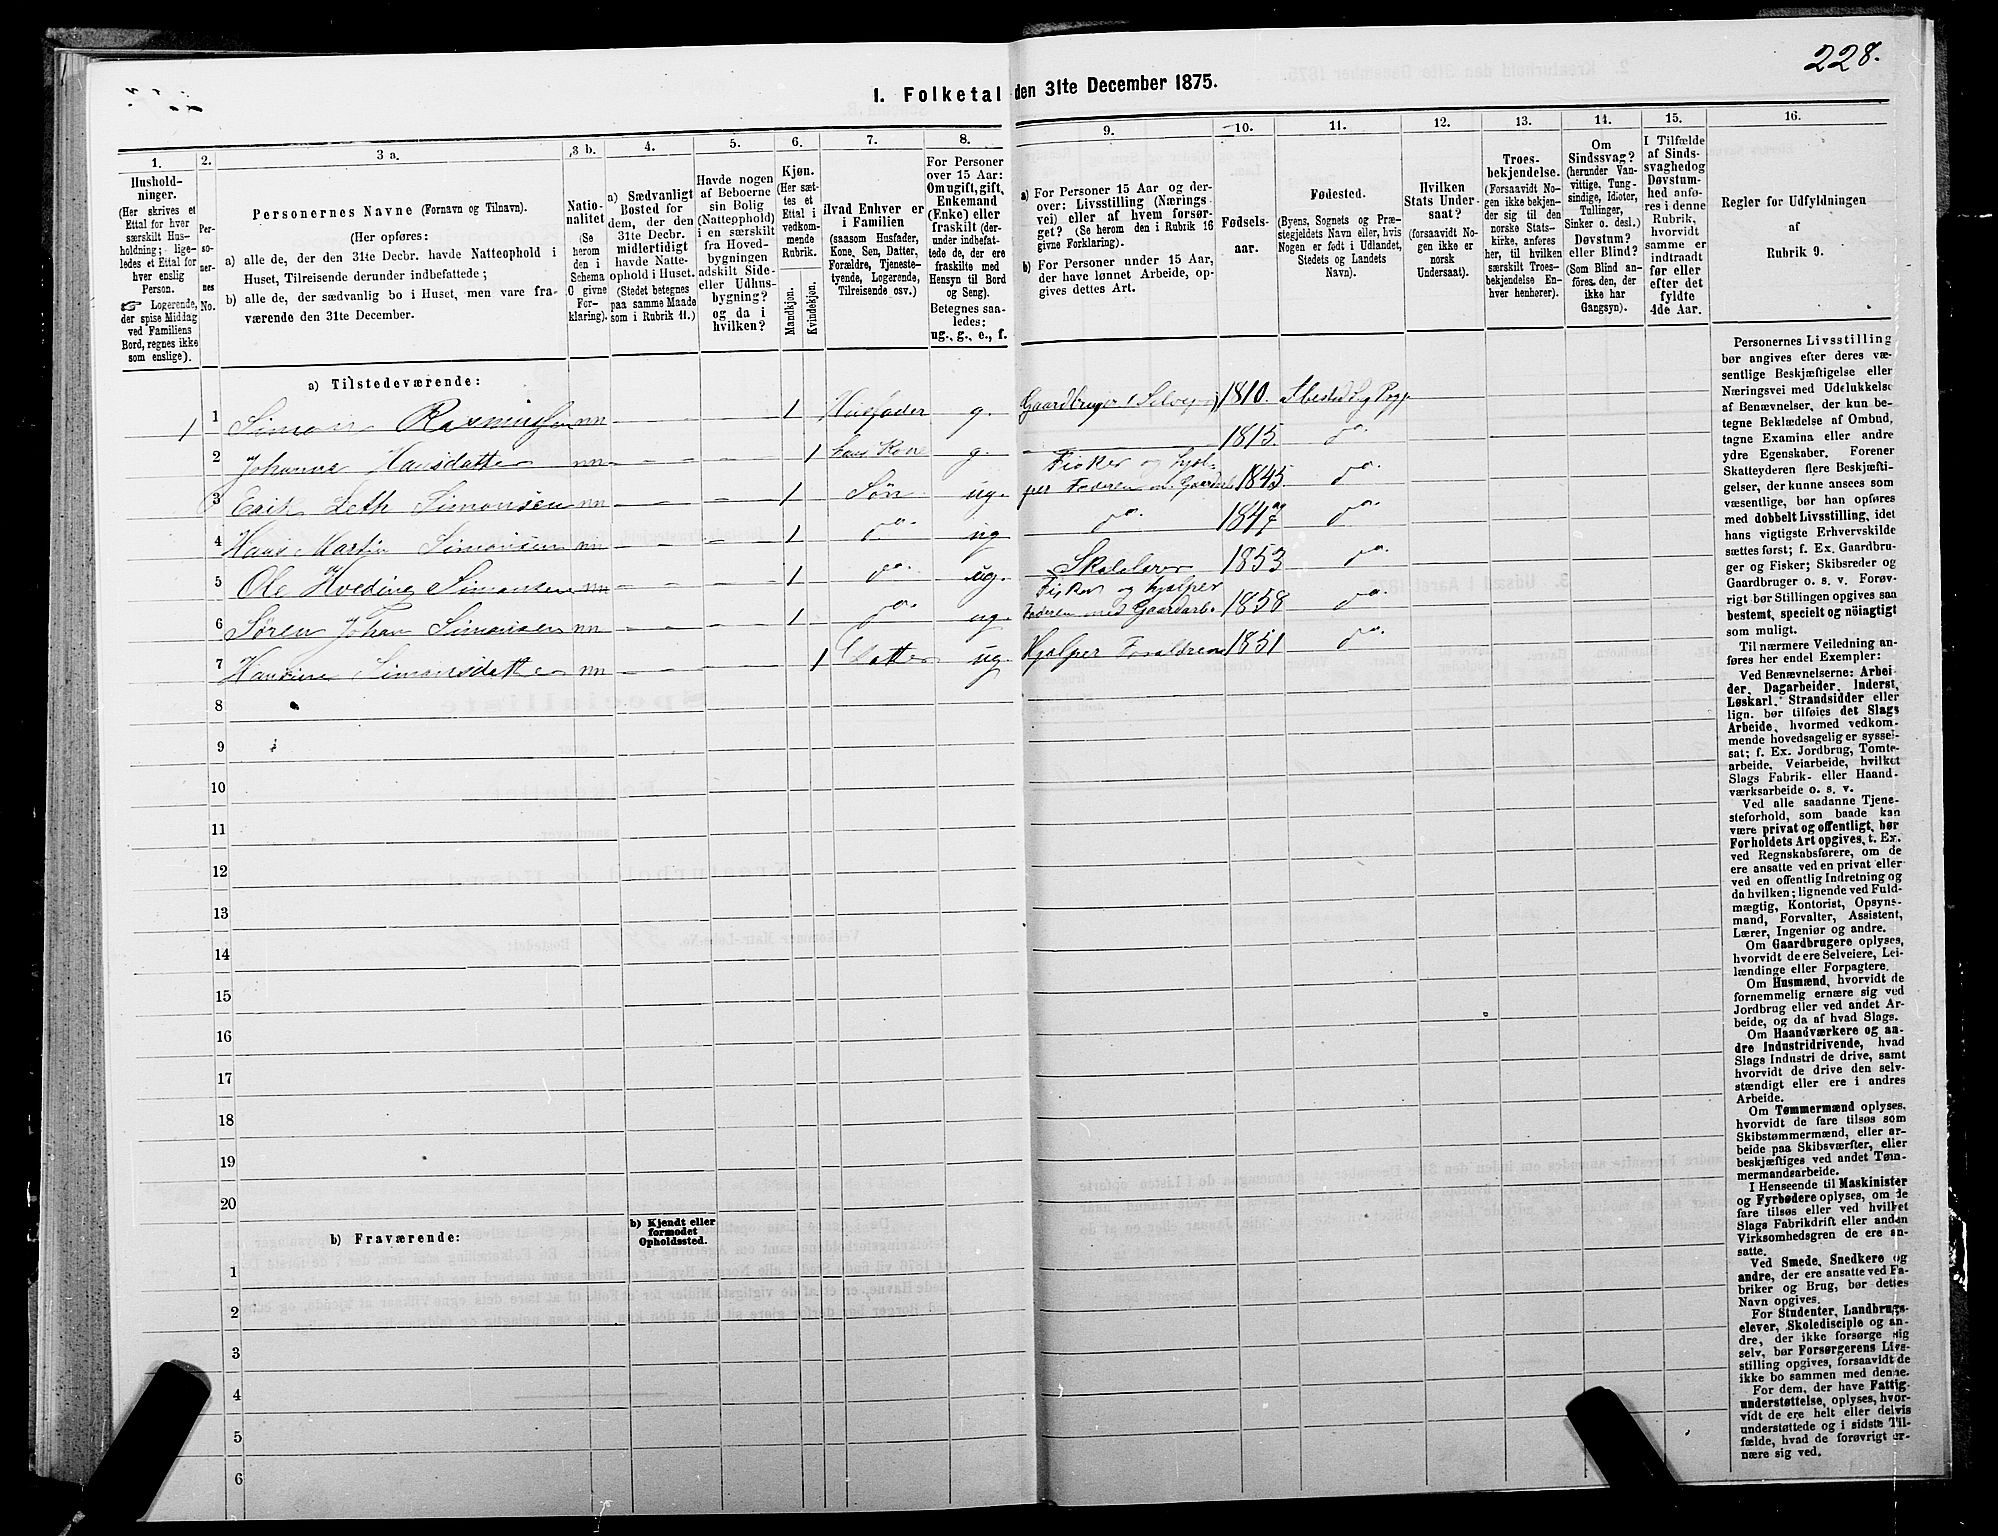 228.
1. Folketal den 31te December 1875.
1.
2.
3 a.
3 b.
4.
5.
6.
7.
8.
9.
10.
11.
12.
13.
14.
15.
16.
Hushold-
ninger.
(Her skrives et
Ettal for hver
særskilt Hus-
holdning; lige-
ledes et Ettal for
hver enslig
Person.
☞ Logerende,
der spise Middag
ved Familiens
Bord, regnes ikke
som enslige).
Per-
so-
ner-
nes
No.
Personernes Navne (Fornavn og Tilnavn).
(Her opføres:
a) alle de, der den 31te Decbr. havde Natteophold i
Huset, Tilreisende derunder indbefattede;
b) alle de, der sædvanlig bo i Huset, men vare fra-
værende den 31te December.
Natio-
nalitet
(Se
herom
den i
Schema
O givne
For-
klaring).
a) Sædvanligt
Bosted for
dem, der den
31te Decbr.
midlertidigt
havde Natte-
ophold i Huset.
(Stedet betegnes
paa samme Maade
som i Rubrik 11.)
Havde nogen
af Beboerne
sin Bolig
(Natteophold)
i en særskilt
fra Hoved-
bygningen
adskilt Side-
eller Udhus-
bygning?
og da i
hvilken?
Kjøn.
(Her sæt-
tes et
Ettal i
vedkom-
mende
Rubrik.
Mandkjøn.
Kvindekjøn.
Hvad Enhver er
i Familien
(saasom Husfader,
Kone, Søn, Datter,
Forældre, Tjeneste-
tyende, Logerende,
Tilreisende osv.)
For Personer
over 15 Aar:
Om ugift, gift,
Enkemand
(Enke) eller
fraskilt (der-
under indbefat-
tede de, der ere
fraskilte med
Hensyn til Bord
og Seng).
Betegnes saa-
ledes:
ug., g., e., f.
a) For Personer 15 Aar og der-
over: Livsstilling (Nærings-
vei) eller af hvem forsør-
get? (Se herom den i Rubrik 16
givne Forklaring).
b) For Personer under 15 Aar,
der have lønnet Arbeide, op-
gives dettes Art.
Fødsels-
aar.
Fødested.
(Byens, Sognets og Præ-
stegjeldets Navn eller, hvis
Nogen er født i Udlandet,
Stedets og Landets
Navn).
Hvilken
Stats Under-
saat?
(forsaavidt No-
gen ikke er
norsk
Undersaat).
Troes-
bekjendelse.
(Forsaavidt No-
gen ikke bekjen-
der sig til den
norske Stats-
kirke, anføres
her, til hvilken
særskilt Troes-
bekjendelse En-
hver henhører).
Om
Sindssvag?
(herunder Van-
vittige, Tung-
sindige, Idioter,
Tullinger,
Sinker o. desl.)
Døvstum?
eller Blind?
(Som Blind an-
føres den, der
ikke har
Gangsyn).
I Tilfælde
af Sinds-
svaghed og
Døvstum-
hed anfø-
res i denne
Rubrik,
hvorvidt
samme er
indtraadt
før eller
efter det
fyldte
4de Aar.
Regler for Udfyldningen
af
Rubrik 9.
a) Tilstedeværende:
1 1 Simon Rasmussen nn 1 Husfader g. Gaardbruger Selveier 1810.
2 Johanna Hansdatter nn 1 hans Kone g. 1815. do.
3 Erik Leth Simonsen nn 1 Søn ug. Fisker og hjæl-
per Faderen m. Gaardsarb. 1845 do.
4 Hans Martin Simonsen nn 1 do. ug do. 1847 do.
5 Ole Hveding Simonsen nn 1 do. ug. Skolelærer 1853 do.
6 Søren Johan Simonsen nn 1 do. ug. Fisker og hjælper
Faderen med Gaardarb. 1858 do.
7 Hansine Simonsdatter nn 1 Datter ug. Hjælper Forældrene 1851 do.
8
9
10
11
12
13
14
15
16
17
18
19
20
b) Fraværende:
b) Kjendt eller
formodet
Opholdssted.
1
2
3
4
5
6
Personernes Livsstilling
bør angives efter deres væ-
sentlige Beskjæftigelse eller
Næringsvei med Udelukkelse
af Benævnelser, der kun be-
tegne Beklædelse af Ombud,
tagne Examina eller andre
ydre Egenskaber. Forener
Skatteyderen flere Beskjæfti-
gelser, der kunne ansees som
væsentlige, bør han opføres
med dobbelt Livsstilling, idet
hans vigtigste Erhvervskilde
sættes først; f. Ex. Gaardbru-
ger og Fisker; Skibsreder og
Gaardbruger o. s. v. Forøv-
rigt bør Stillingen opgives saa
bestemt, specielt og nøiagtigt
som muligt.
Til nærmere Veiledning an-
føres her endel Exempler:
Ved Benævnelserne: Arbei-
der, Dagarbeider, Inderst,
Løskarl, Strandsidder eller
lign. bør tilføies det Slags
Arbeide, hvormed vedkom-
mende hovedsagelig er syssel-
sat; f. Ex. Jordbrug, Tomte-
arbeide, Veiarbeide, hvilket
Slags Fabrik- eller Haand-
værksarbeide o. s. v.
Ved alle saadanne Tjene-
steforhold, som baade kan
være privat og offentligt, bør
Forholdets Art opgives, t. Ex.
ved Regnskabsførere, om de
ere ansatte ved en privat eller
ved en offentlig Indretning og
da hvilken; lignende ved Fuld-
mægtig, Kontorist, Opsyns-
mand, Forvalter, Assistent,
Lærer, Ingeniør og andre.
Om Gaardbrugere oplyses,
hvorvidt de ere Selveiere, Lei-
lændinge eller Forpagtere.
Om Husmænd, hvorvidt de
fornemmelig ernære sig ved
Jordbrug eller ved andet Ar-
beide, og da af hvad Slags.
Om Haandværkere og an-
dre Industridrivende, hvad
Slags Industri de drive, samt
hvorvidt de drive den selv-
stændigt eller ere i andres
Arbeide.
Om Tømmermænd oplyses,
hvorvidt de fare tilsøs som
Skibstømmermænd, eller ar-
beide paa Skibsværfter, eller
beskjæftiges ved andet Tøm-
mermandsarbeide.
I Henseende til Maskinister
og Fyrbødere oplyses, om de
fare tilsøs eller ved hvilket
Slags Fabrikdrift eller anden
Virksomhedsgren de ere an-
satte.
Ved Smede, Snedkere og
andre, der ere ansatte ved Fa-
briker og Brug, bør dettes
Navn opgives.
For Studenter, Landbrugs-
elever, Skoledisciple og an-
dre, der ikke forsørge sig
selv, bør Forsørgerens Livs-
stilling opgives, forsaavidt de
ikke bo sammen med denne.
For dem, der have Fattig-
understøttelse, oplyses, hvor-
vidt de ere helt eller delvis
understøttede og i sidste Til-
fælde, hvad de forøvrigt er-
nære sig ved.